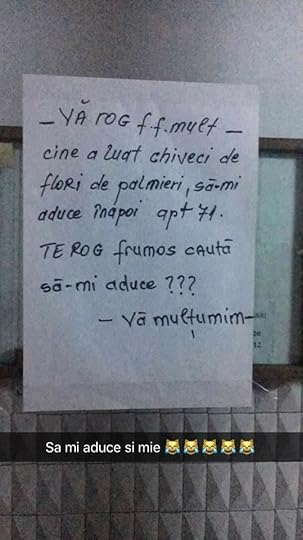 — VĂ rog f.f. mult —
cine a luat chiveci de
flori de palmieri, să-mi
aduce înapoi apt 71.
TE ROG frumos caută
să-mi aduce ???
— Vă mulțumim —
Sa mi aduce si mie 😹😹😹😹😹